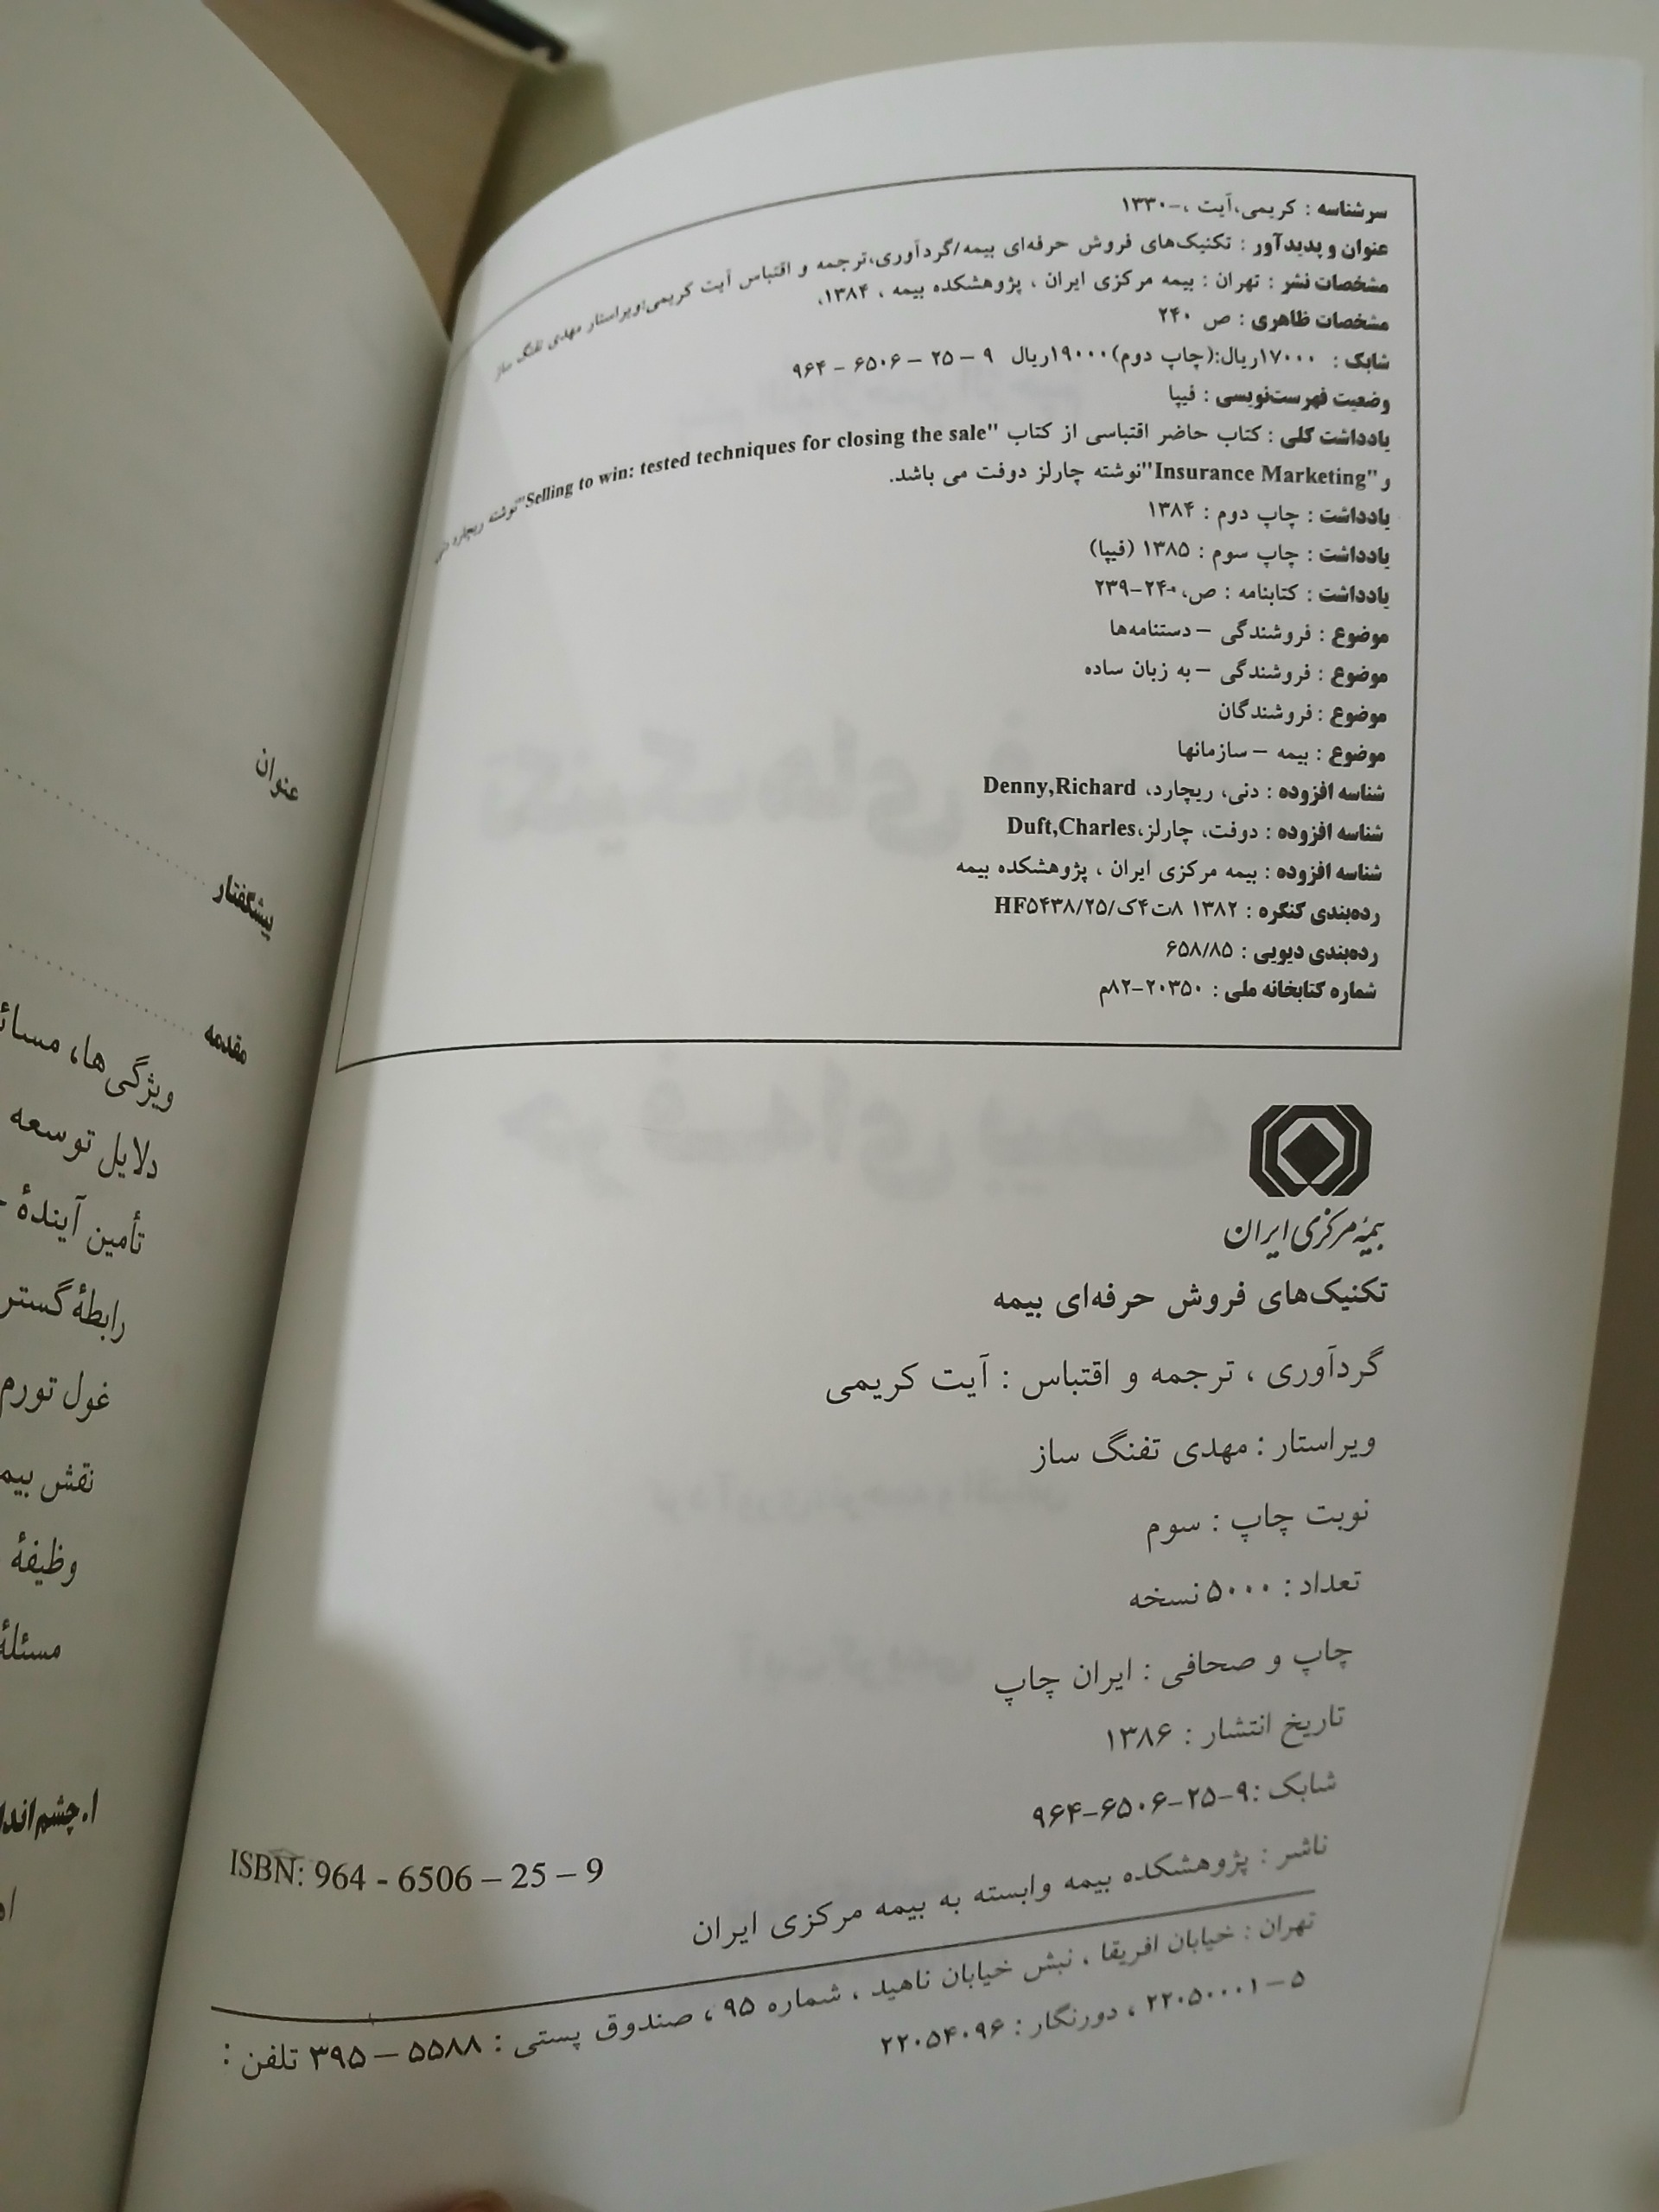 سرشناسه : کریمی،آیت ،-۱۳۳۰
عنوان و پدیدآور : تکنیک‌های فروش حرفه‌ای بیمه/گردآوری،ترجمه و اقتباس آیت کریمی؛ویراستار مهدی تفنگ ساز
مشخصات نشر : تهران : بیمه مرکزی ایران ، پژوهشکده بیمه ، ۱۳۸۴.
مشخصات ظاهری : ص ۲۴۰
شابک : ۱۷۰۰۰ریال:(چاپ دوم)۱۹۰۰۰ریال ۹ – ۲۵ – ۶۵۰۶ – ۹۶۴
وضعیت فهرست‌نویسی : فیپا
یادداشت کلی : کتاب حاضر اقتباسی از کتاب "Selling to win: tested techniques for closing the sale"نوشته ریچارد دنی
و "Insurance Marketing"نوشته چارلز دوفت می باشد.
یادداشت : چاپ دوم : ۱۳۸۴
یادداشت : چاپ سوم : ۱۳۸۵ (فیپا)
یادداشت : کتابنامه : ص، ۲۴۰–۲۳۹
موضوع : فروشندگی – دستنامه‌ها
موضوع : فروشندگی – به زبان ساده
موضوع : فروشندگان
موضوع : بیمه – سازمانها
شناسه افزوده : دنی، ریچارد، Denny,Richard
شناسه افزوده : دوفت، چارلز،Duft,Charles
شناسه افزوده : بیمه مرکزی ایران ، پژوهشکده بیمه
رده‌بندی کنگره : ۱۳۸۲ ۸ت۴ک/HF۵۴۳۸/۲۵
رده‌بندی دیویی : ۶۵۸/۸۵
شماره کتابخانه ملی : ۲۰۳۵۰–۸۲م
بیمهٔ مرکزی ایران
تکنیک‌های فروش حرفه‌ای بیمه
گردآوری ، ترجمه و اقتباس : آیت کریمی
ویراستار : مهدی تفنگ ساز
نوبت چاپ : سوم
تعداد : ۵۰۰۰ نسخه
چاپ و صحافی : ایران چاپ
تاریخ انتشار : ۱۳۸۶
شابک :۹-۲۵-۶۵۰۶-۹۶۴
ISBN: 964 - 6506 – 25 – 9
ناشر : پژوهشکده بیمه وابسته به بیمه مرکزی ایران
تهران : خیابان افریقا ، نبش خیابان ناهید ، شماره ۹۵ ، صندوق پستی : ۵۵۸۸ – ۳۹۵ تلفن :
۵ – ۲۲۰۵۰۰۰۱ ، دورنگار : ۲۲۰۵۴۰۹۶
عنوان
پیشگفتار
مقدمه
ویژگی‌ها،
دلایل توسعه
تأمین آیندهٔ
رابطهٔ
غول تورم
نقش
وظیفهٔ
مسئلهٔ
۱.